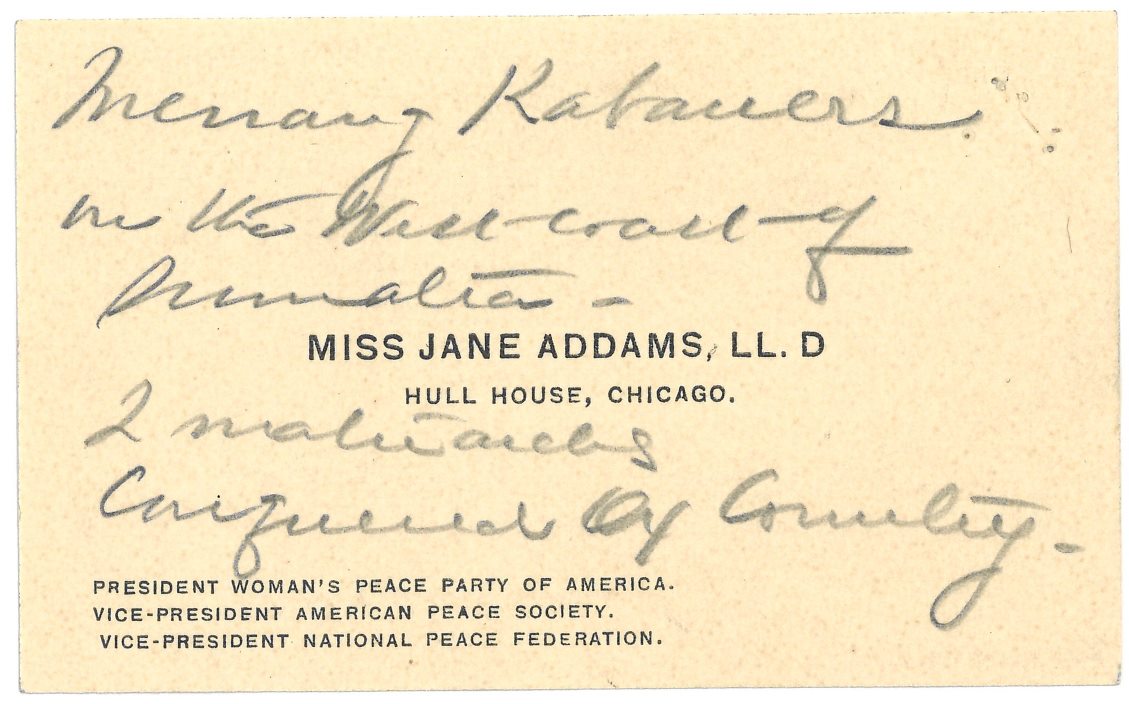 Menang Kabauers.
on the West coast of
Sumatra -
MISS JANE ADDAMS, LL. D
HULL HOUSE, CHICAGO.
2 matriarchs
Conquered by Country -
PRESIDENT WOMAN'S PEACE PARTY OF AMERICA.
VICE-PRESIDENT AMERICAN PEACE SOCIETY.
VICE-PRESIDENT NATIONAL PEACE FEDERATION.